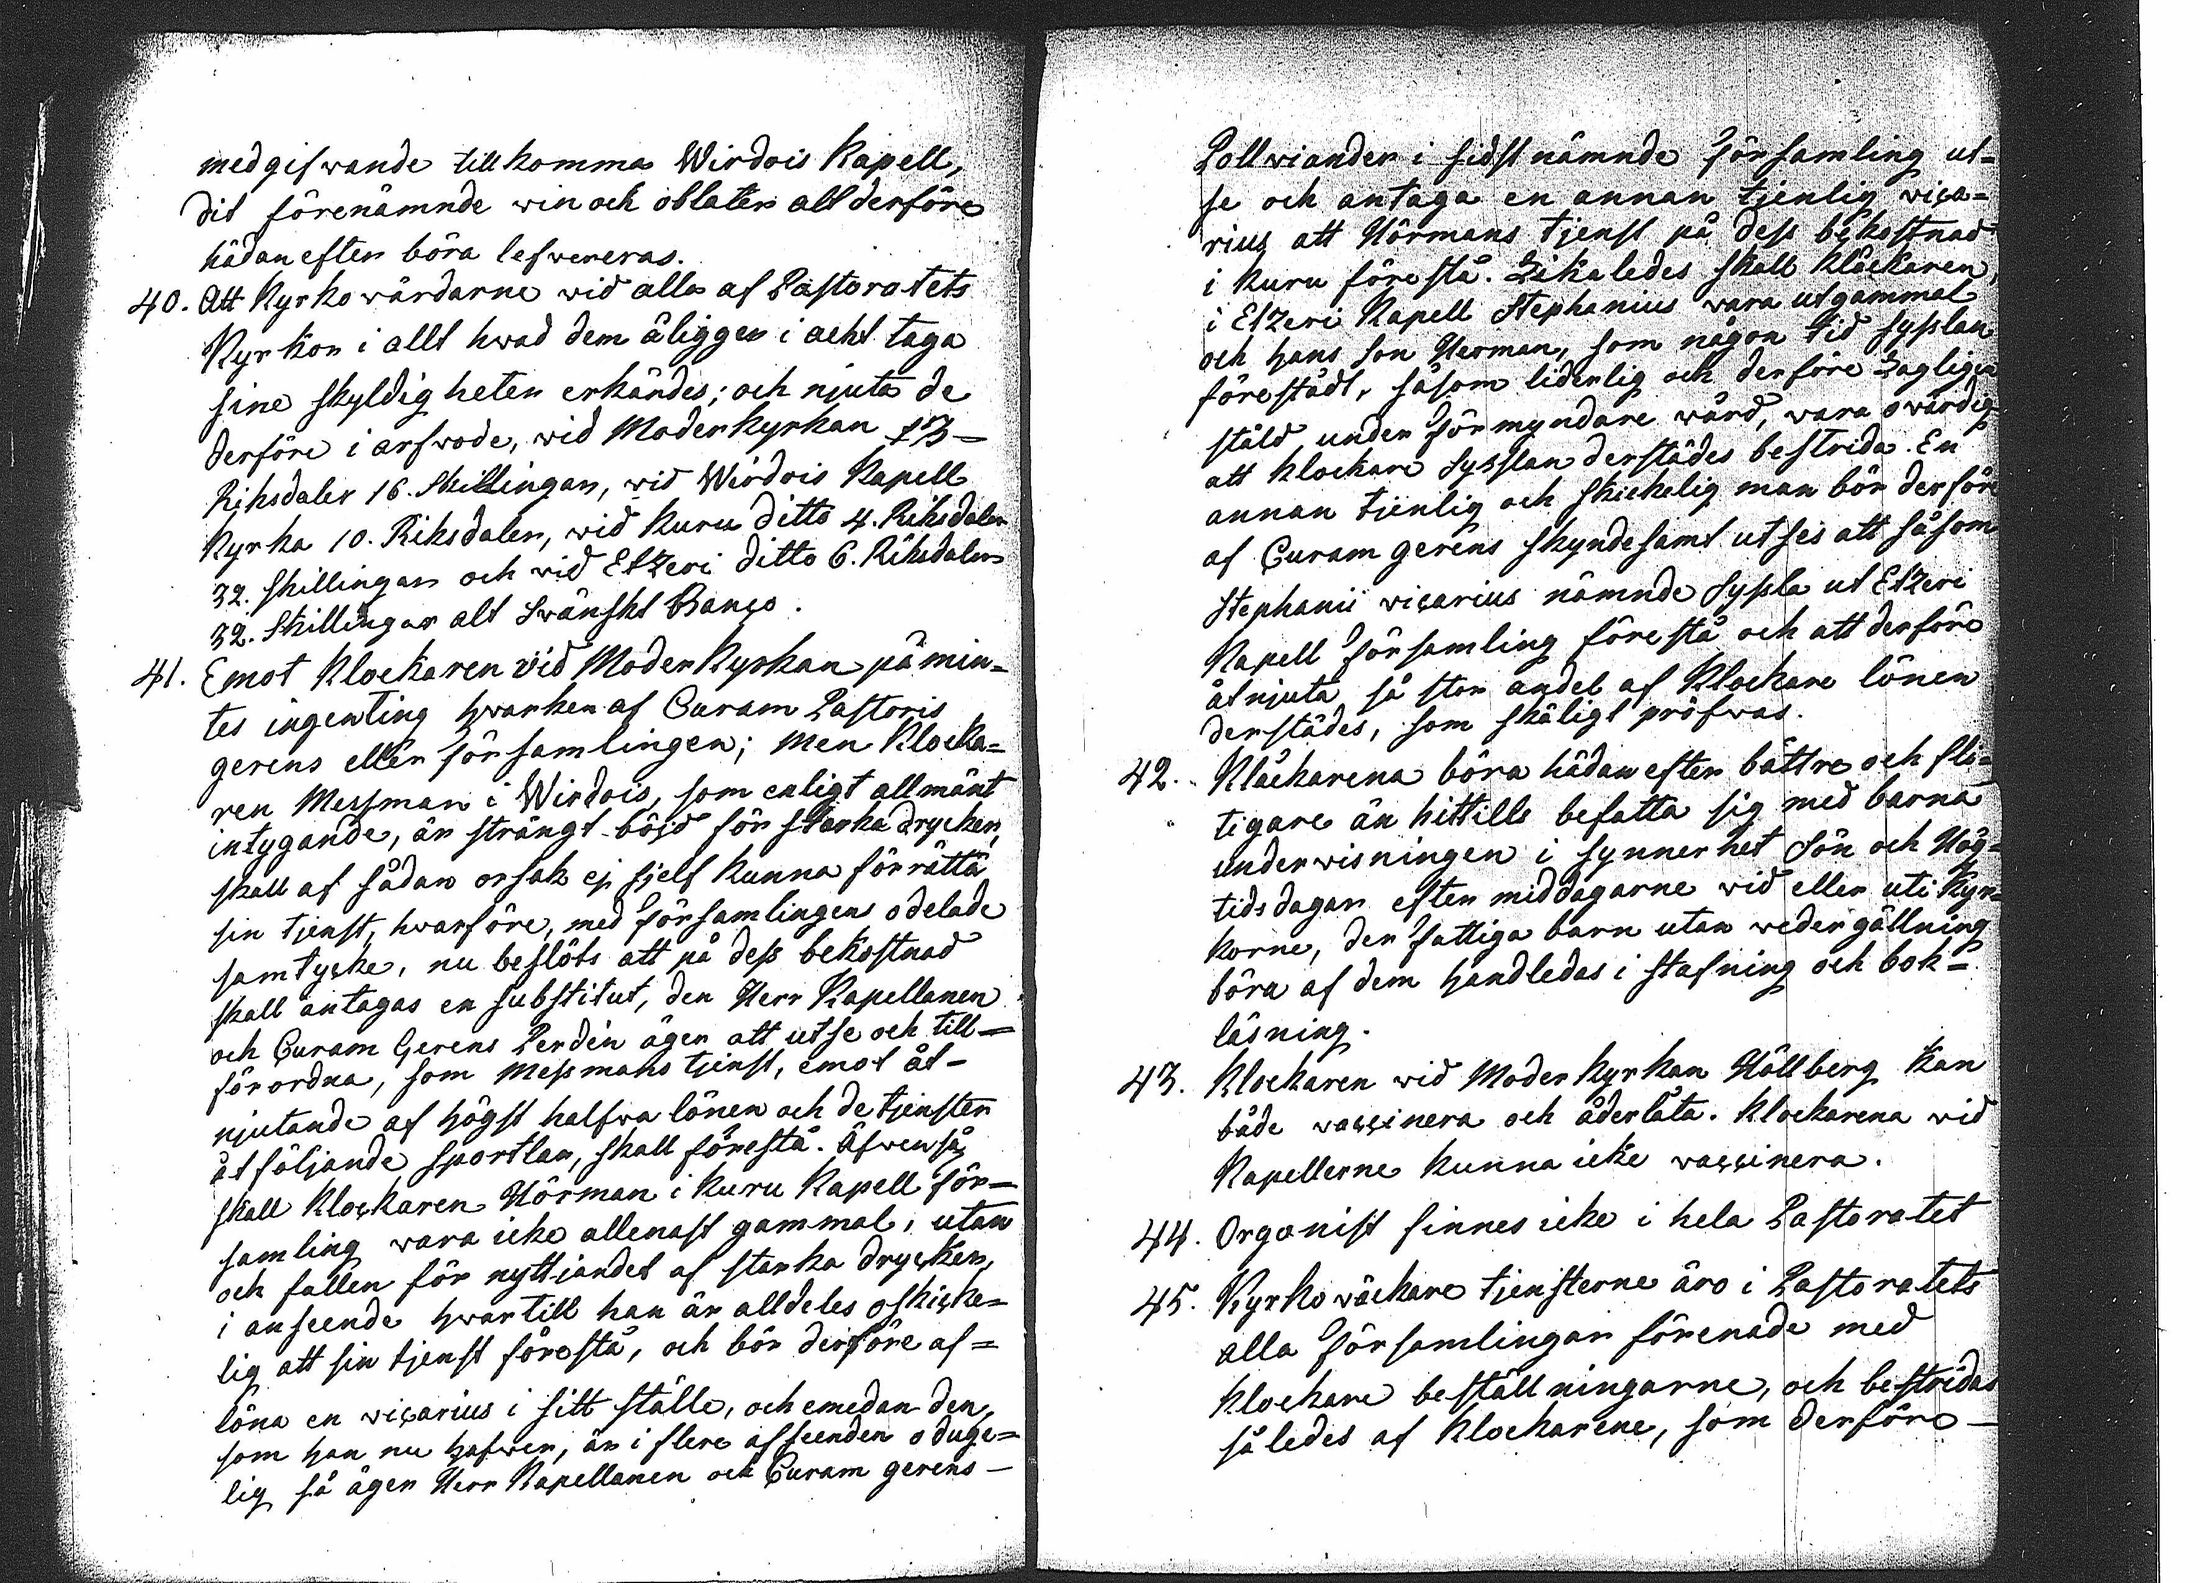 medgifwande tillkomma Wirdois Kapell,
dit förenämnde win och oblater allt derföre
hädanefter böra lefwereras.
40. Att Kyrkowärdarne wid alla af Pastoratets
Kyrkor i allt hwad dem åligger i acht taga
sine skyldigheter erkändes; och njuta de
derföre i arfwode, wid Moderkyrkan 13 –
Riksdaler 16. Skillingar, wid Wirdois Kapell
Kyrka 10. Riksdaler, wid Kuru ditto 4. Riksdaler
32. Skillingar och wid Etzeri ditto 6. Riksdaler
32. Skillingar alt Swänskt Banço.
41. Emot Klockaren vid Moderkyrkan påmin=
tes ingenting hwarken af Curam Pastoris
gerens eller Församlingen; men Klocka=
ren Messman i Wirdois, som enligt allmänt
intygande, är strängt böjd för starka drycker,
skall af sådan orsak ej sjelf kunna förrätta
sin tjenst, hwarföre, med Församlingens odelade
samtycke, nu beslöts att på dess bekostnad
skall antagas en substitut, den Herr Kapellanen
och Curam Gerens Perdén äger att utse och till=
förordna, som Messmans tjenst, emot åt=
njutande af högst halfwa lönen och de tjensten
åtföljande sportlar, skall förestå. Äfwenså
skall Klockaren Hörman i Kuru Kapell för=
samling wara icke allenast gammal, utan
och fallen för nyttjandet af starka drycker,
i anseende hwartill han är alldeles oskicke=
lig att sin tjenst förestå, och bör derföre af=
löna en viçarius i sitt ställe, och emedan den,
som han nu hafwer, är i flere afseenden oduge=
lig så äger Herr Kapellanen och Curam gerens –
Pollviander i sidstnämnde Församling ut=
se och antaga en annan tjenlig viça=
rius att Hörmans tjenst på dess bekostnad
i Kuru förestå. Likaledes skall Klåckaren
i Etzeri Kapell Stephanius wara utgammal
och hans son Herman, som någon tid sysslan
förestådt, såsom liderlig och derföre Lagligen
ståld under Förmyndare wård, wara owärdig
att Klockare Sysslan derstädes bestrida. En
annan tjenlig och skickelig man bör derföre
af Curam gerens skyndesamt utses att såsom
Stephanii viçarius nämnde Syssla ut Etzeri
Kapell Församling förestå och att derföre
åtnjuta så stor andel af Klockare lönen
derstädes, som skäligt pröfwas.
42. Klåckarena böra hädanefter bättre och fli=
tigare än hittills befatta sig med barna
underwisningen i synnerhet Sön och Hög=
tidsdagar efter middagarne wid eller uti Kyr=
korne, der fattiga barn utan wedergällning
böra af dem handledas i stafning och bok=
läsning.
43. Klockaren wid Moderkyrkan Hållberg kan
både vaççinera och åderlåta. Klockarena wid
Kapellerne kunna icke vaççinera.
44. Organist finnes icke i hela Pastoratet
45. Kyrkowäckare tjensterne äro i Pastoratets
alla Församlingar förenade med
Klockare beställningarne, och bestridas
således af Klockarene, som derföre –